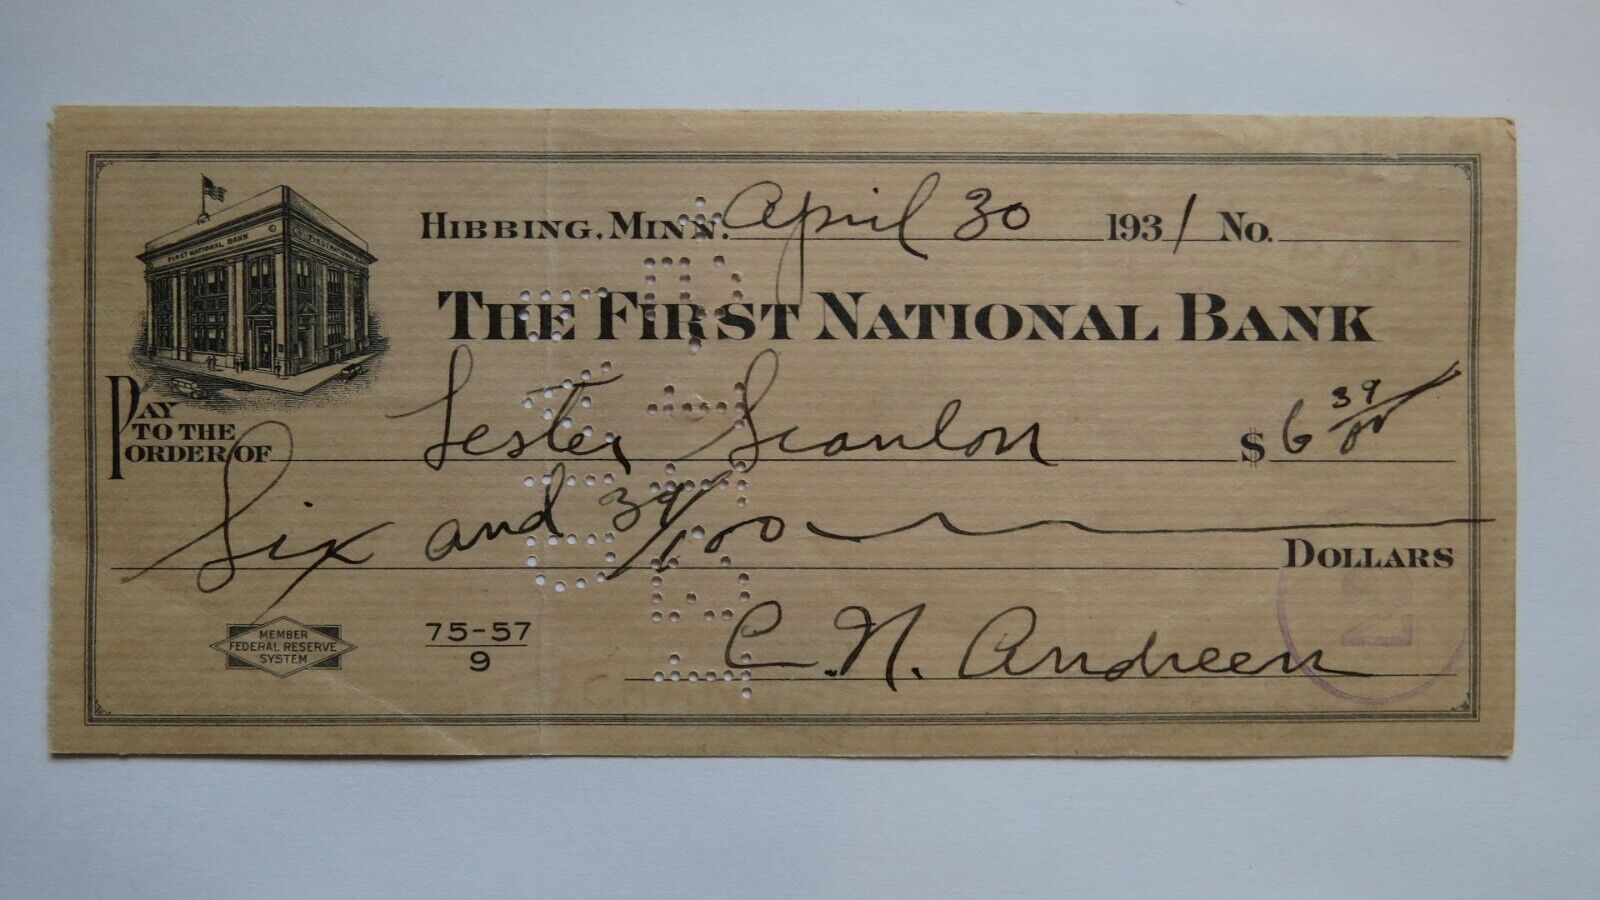 FIRST NATIONAL BANK FIRST NATIONAL
HIBBING, MINN. April 30 1931 No.
THE FIRST NATIONAL BANK
PAY TO THE ORDER OF Lester Scanlon $ 6 39/00
Six and 39/100 DOLLARS
MEMBER
FEDERAL RESERVE
SYSTEM
75-57
9
C. N. Andreen